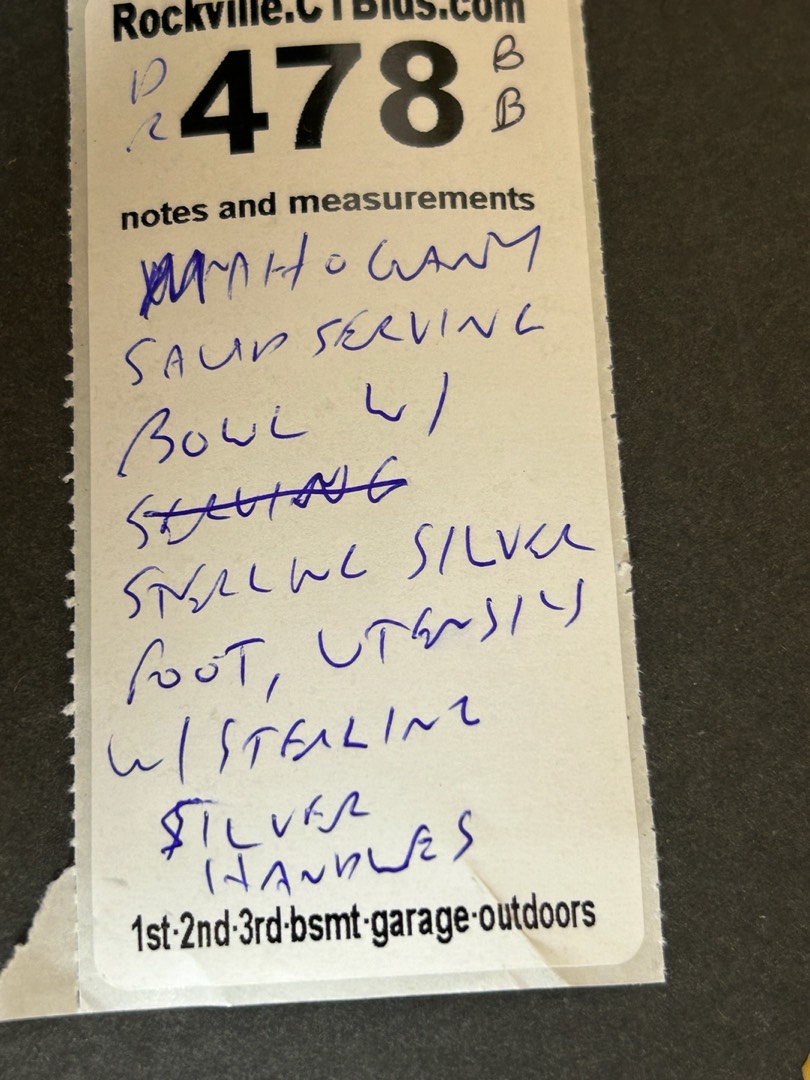 Rockville.CTBids.com
D B
478
R B
notes and measurements
MAHOGANY
SALAD SERVING
BOWL W/
SERVING
STERLING SILVER
FOOT, UTENSILS
W/ STERLING
SILVER
HANDLES
1st·2nd·3rd·bsmt·garage·outdoors